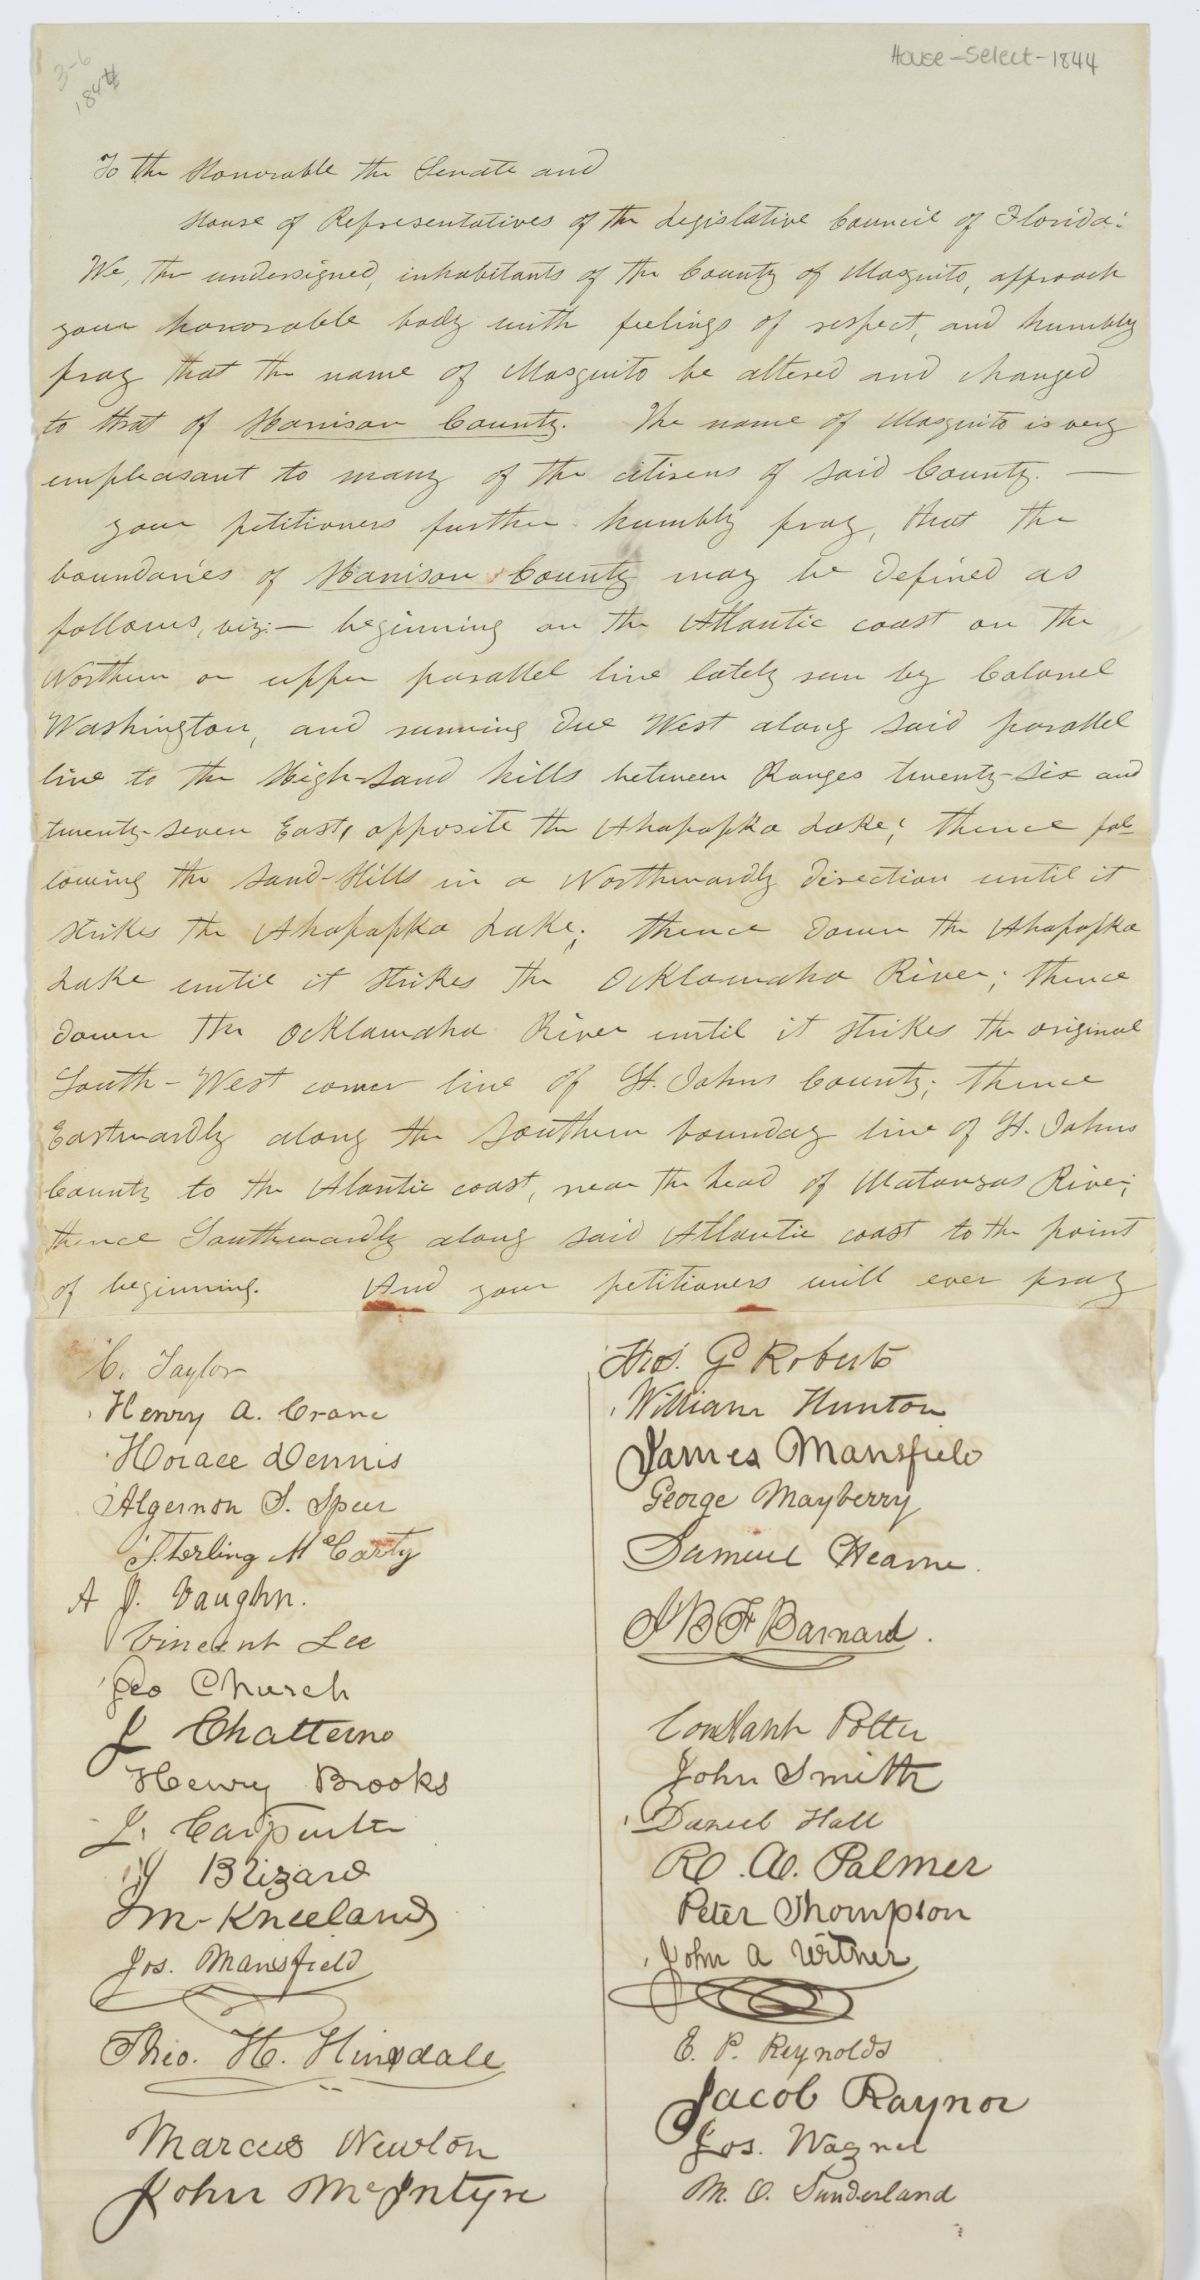 3-6
1844
House-Select-1844
To the Honorable the Senate and
House of Representatives of the Legislative Council of Florida:
We, the undersigned, inhabitants of the County of Mosquito, approach
your honorable body with feelings of respect, and humbly
pray that the name of Mosquito be altered and changed
to that of Harrison County. The name of Mosquito is very
unpleasant to many of the citizens of said County. —
your petitioners further humbly pray, that the
boundaries of Harrison County may be defined as
follows, viz: — beginning on the Atlantic coast on the
Northern or upper parallel line lately run by Colonel
Washington, and running due West along said parallel
line to the High-Sand hills between Ranges twenty-six and
twenty-seven East, opposite the Ahapopka Lake; thence fol-
lowing the Sand-Hills in a Northwardly direction until it
strikes the Ahapopka Lake; thence down the Ahapopka
Lake until it strikes the Ocklawaha River; thence
down the Ocklawaha River until it strikes the original
South-West corner line of St. Johns County; thence
Eastwardly along the Southern bounday line of St. Johns
County to the Atlantic coast, near the head of Matanzas River;
thence Southwardly along said Atlantic coast to the point
of beginning. And your petitioners will ever pray
C. Taylor
Henry A. Crane
Horace Dennis
Algernon S. Speer
Sterling McCarty
A J. Vaughn.
Vincent Lee
Geo Church
J Chatterno
Henry Brooks
J. Carpenter
J Blizard
M-Kneeland
Jos. Mansfield
Theo. H. Hinsdale
Marcus Newton
John McIntyre
Thos. G Roberts
William Hunton
James Mansfield
George Mayberry
Samuel Hearne.
J B F Barnard.
Constant Potter
John Smith
Daniel Hall
R. A. Palmer
Peter Thompson
John A Witner
E. P. Reynolds
Jacob Raynor
Jos. Wagner
M. O. Sunderland